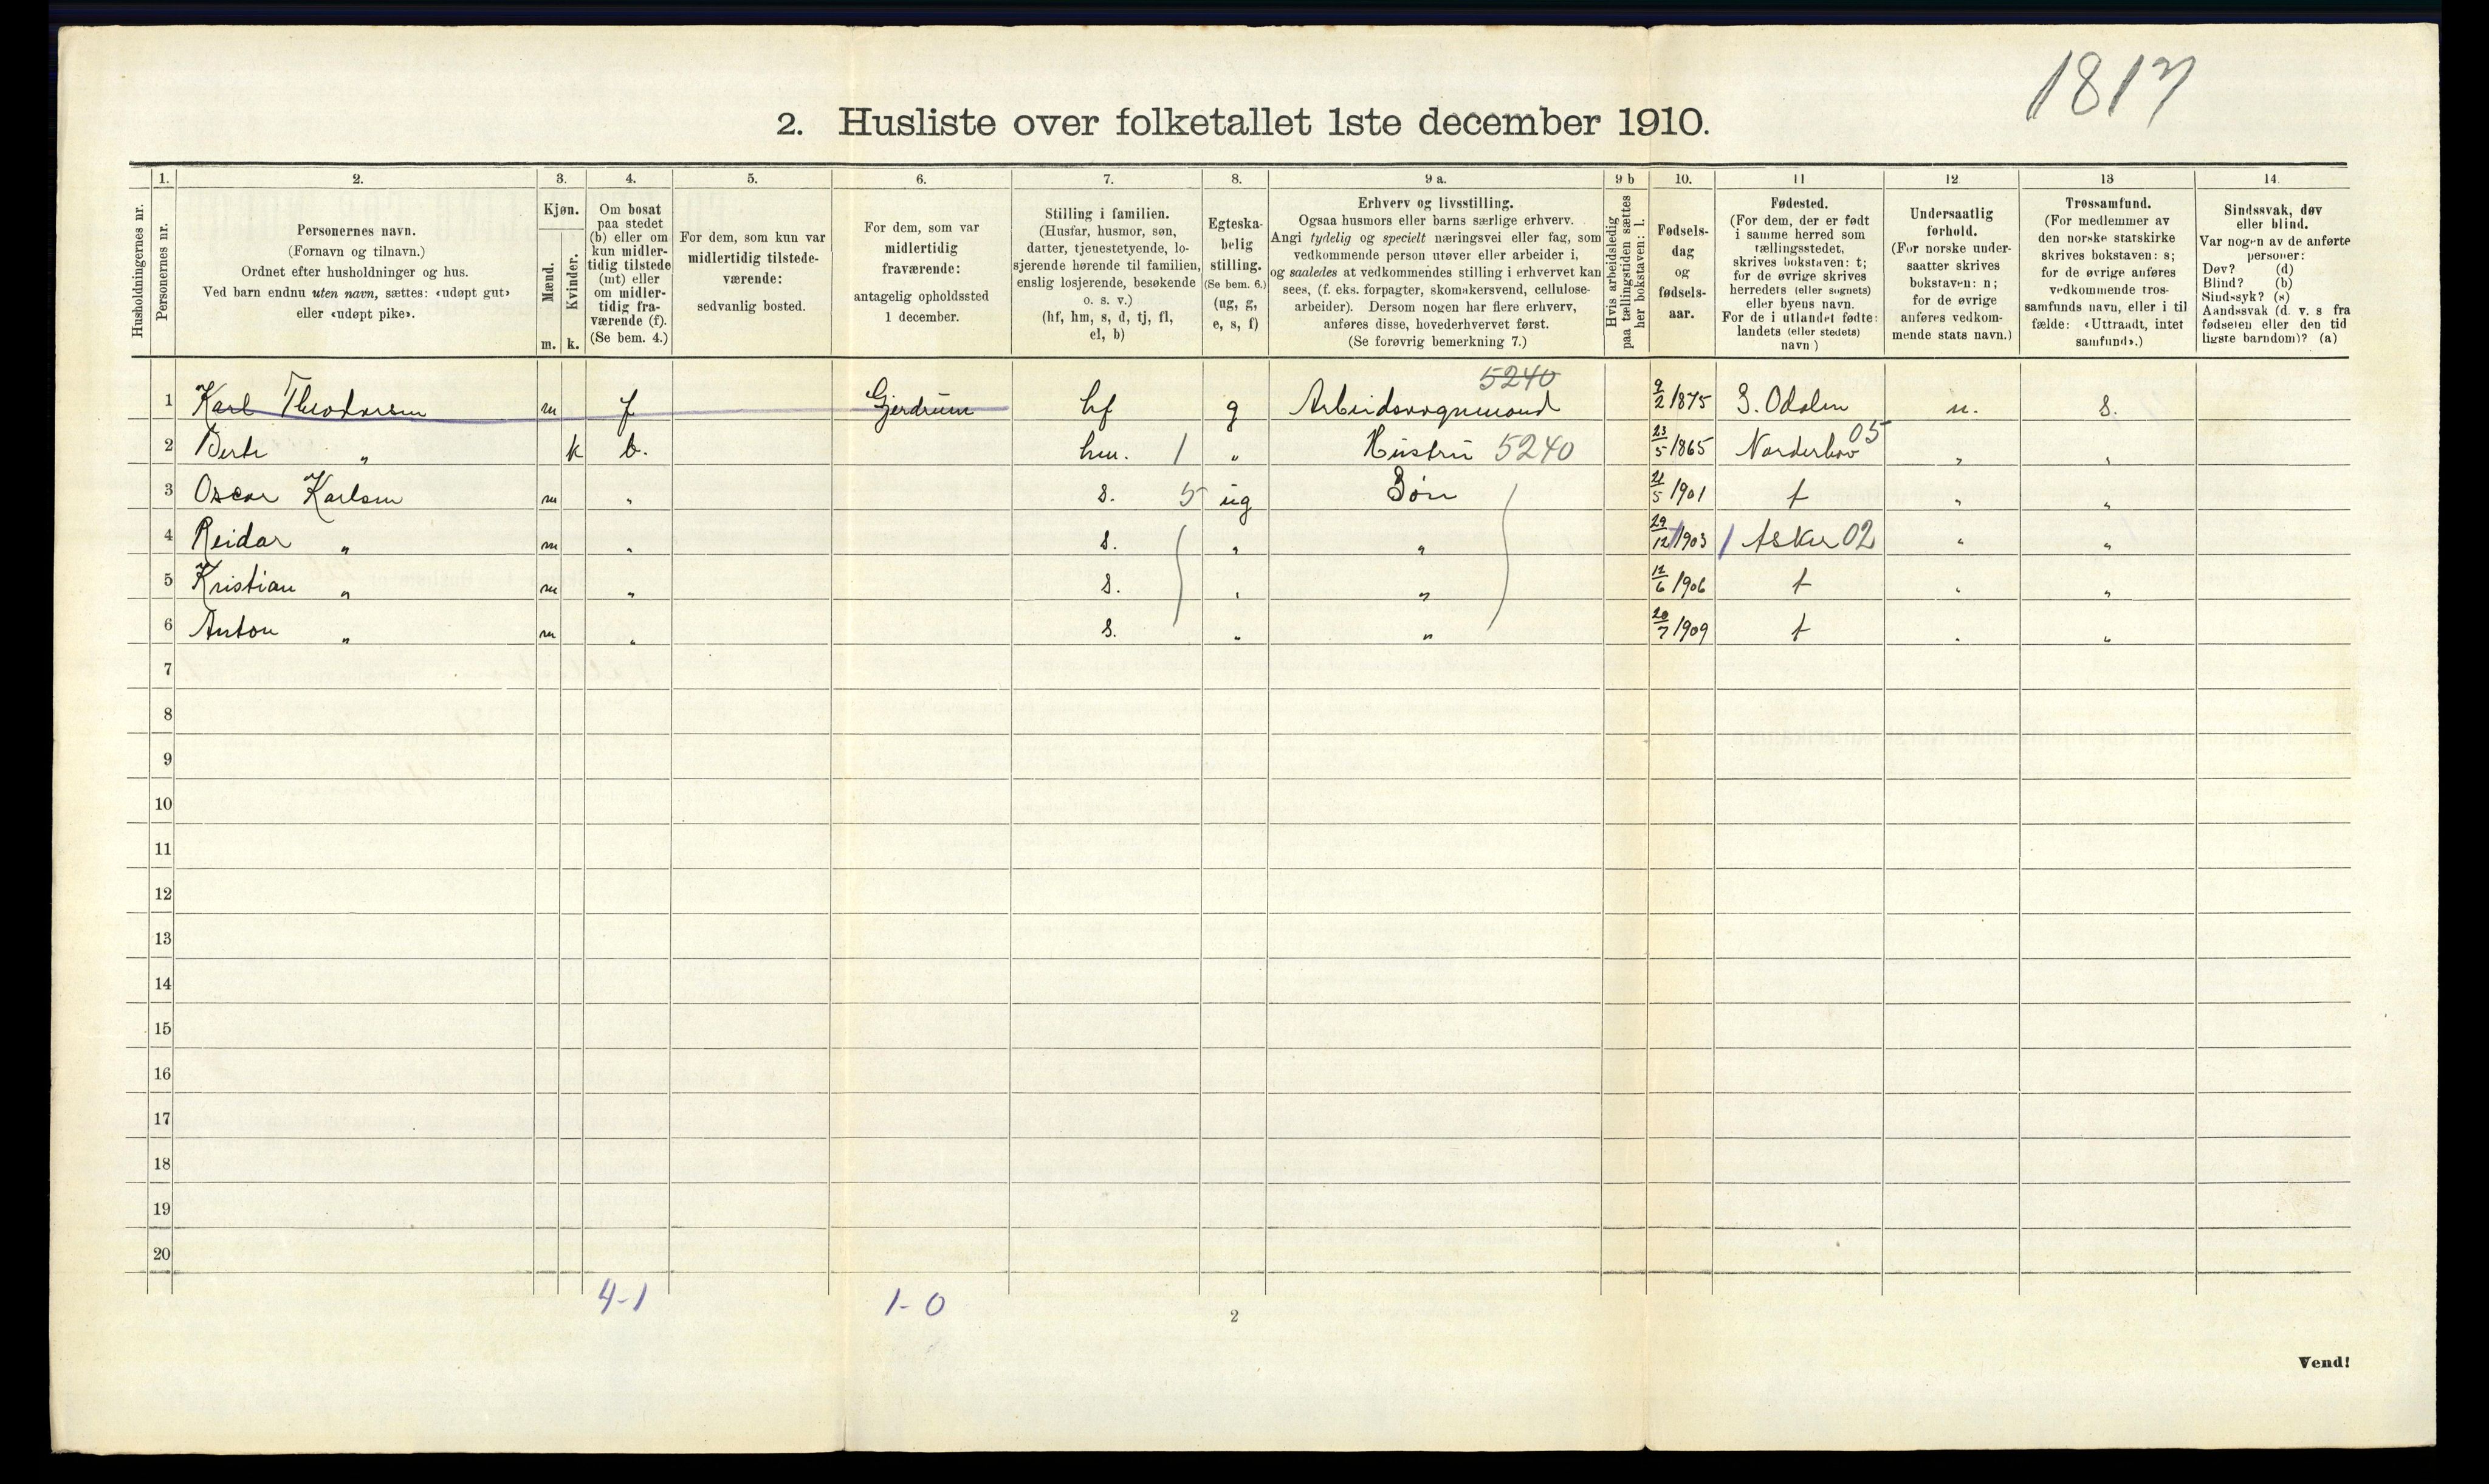 1817
2. Husliste over folketallet 1ste december 1910.
Husholdningernes nr.
1.
Personernes nr.
2.
Personernes navn.
(Fornavn og tilnavn.)
Ordnet efter husholdninger og hus.
Ved barn endnu uten navn, sættes: «udøpt gut»
eller «udøpt pike».
3.
Kjøn.
Mænd.
Kvinder.
m. k.
4.
Om bosat
paa stedet
(b) eller om
kun midler-
tidig tilstede
(mt) eller
om midler-
tidig fra-
værende (f).
(Se bem. 4.)
5.
For dem, som kun var
midlertidig tilstede-
værende:
sedvanlig bosted.
6.
For dem, som var
midlertidig
fraværende:
antagelig opholdssted
1 december.
7.
Stilling i familien.
(Husfar, husmor, søn,
datter, tjenestetyende, lo-
sjerende hørende til familien,
enslig losjerende, besøkende
o. s. v.)
(hf, hm, s, d, tj, fl,
el, b)
8.
Egteska-
belig
stilling.
(Se bem. 6.)
(ug, g,
e, s, f)
9 a.
Erhverv og livsstilling.
Ogsaa husmors eller barns særlige erhverv.
Angi tydelig og specielt næringsvei eller fag, som
vedkommende person utøver eller arbeider i,
og saaledes at vedkommendes stilling i erhvervet kan
sees, (f. eks. forpagter, skomakersvend, cellulose-
arbeider). Dersom nogen har flere erhverv,
anføres disse, hovederhvervet først.
(Se forøvrig bemerkning 7.)
9 b
Hvis arbeidsledig
paa tællingstiden sættes
her bokstaven: l.
10.
Fødsels-
dag
og
fødsels-
aar.
11
Fødested.
(For dem, der er født
i samme herred som
tællingsstedet,
skrives bokstaven: t;
for de øvrige skrives
herredets (eller sognets)
eller byens navn.
For de i utlandet fødte:
landets (eller stedets)
navn)
12
Undersaatlig
forhold.
(For norske under-
saatter skrives
bokstaven: n;
for de øvrige
anføres vedkom-
mende stats navn.)
13
Trossamfund.
(For medlemmer av
den norske statskirke
skrives bokstaven: s;
for de øvrige anføres
vedkommende tros-
samfunds navn, eller i til
fælde: «Uttraadt, intet
samfund».)
14.
Sindssvak, døv
eller blind.
Var nogen av de anførte
personer:
Døv? (d)
Blind? (b)
Sindssyk? (s)
Aandssvak (d. v. s fra
fødselen eller den tid
ligste barndom)? (a)
5240
1 Karl Theodorsen m f Gjerdrum hf g Arbeidsvognmand 9/2 1875 S. Odalen n. s.
2 Berte " k b. hm. 1 " Hustru 5240 23/5 1865 Norderhov 05 " "
3 Oscar Karlsen m " s. 5 ug Søn 21/5 1901 t " "
4 Reidar " m " s. " " 29/12 1903 1 Asker 02 " "
5 Kristian " m " s. " " 12/6 1906 t " "
6 Anton " m " s. " " 20/7 1909 t " "
7
8
9
10
11
12
13
14
15
16
17
18
19
20
4-1 1-0
2
Vend!